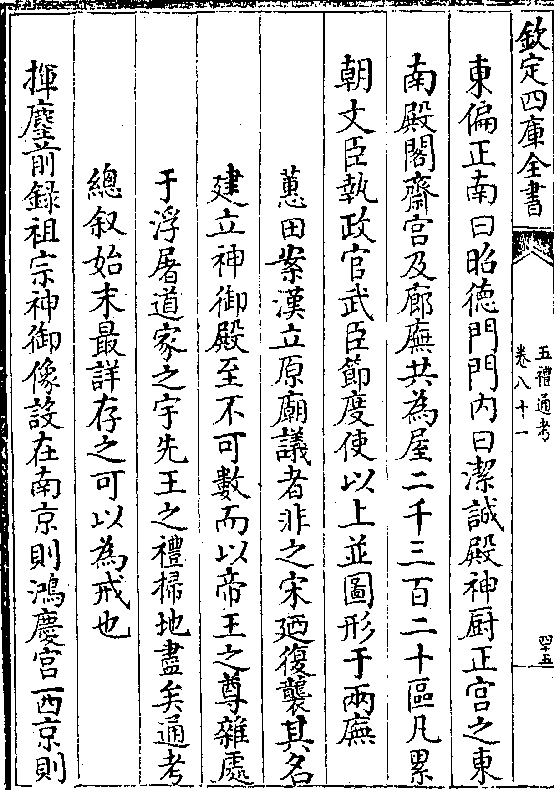 欽定四庫全書
五禮通考
卷八十一
四十五
東偏正南曰昭德門門内曰潔誠殿神厨正宫之東
南殿閣齋宫及廊廡共為屋二千三百二十區凡累
朝文臣執政官武臣節度使以上並圖形于兩廡
蕙田案漢立原廟議者非之宋廼復襲其名
建立神御殿至不可數而以帝王之尊雜處
于浮屠道家之宇先王之禮掃地盡矣通考
總叙始末最詳存之可以為戒也
揮麈前録祖宗神御像設在南京則鴻慶宫西京則